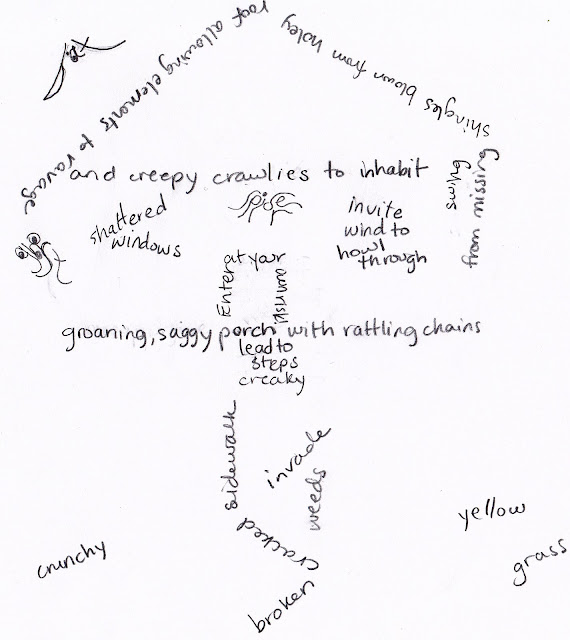 shingles blown from holey
roof allowing elements to ravage
and creepy crawlies to inhabit
shattered
windows
invite
wind to
howl
through
from missing
Enter
at your
own risk!
groaning, saggy porch with rattling chains
lead to
steps
creaky
sidewalk
invade
weeds
cracked
broken
crunchy
yellow
grass